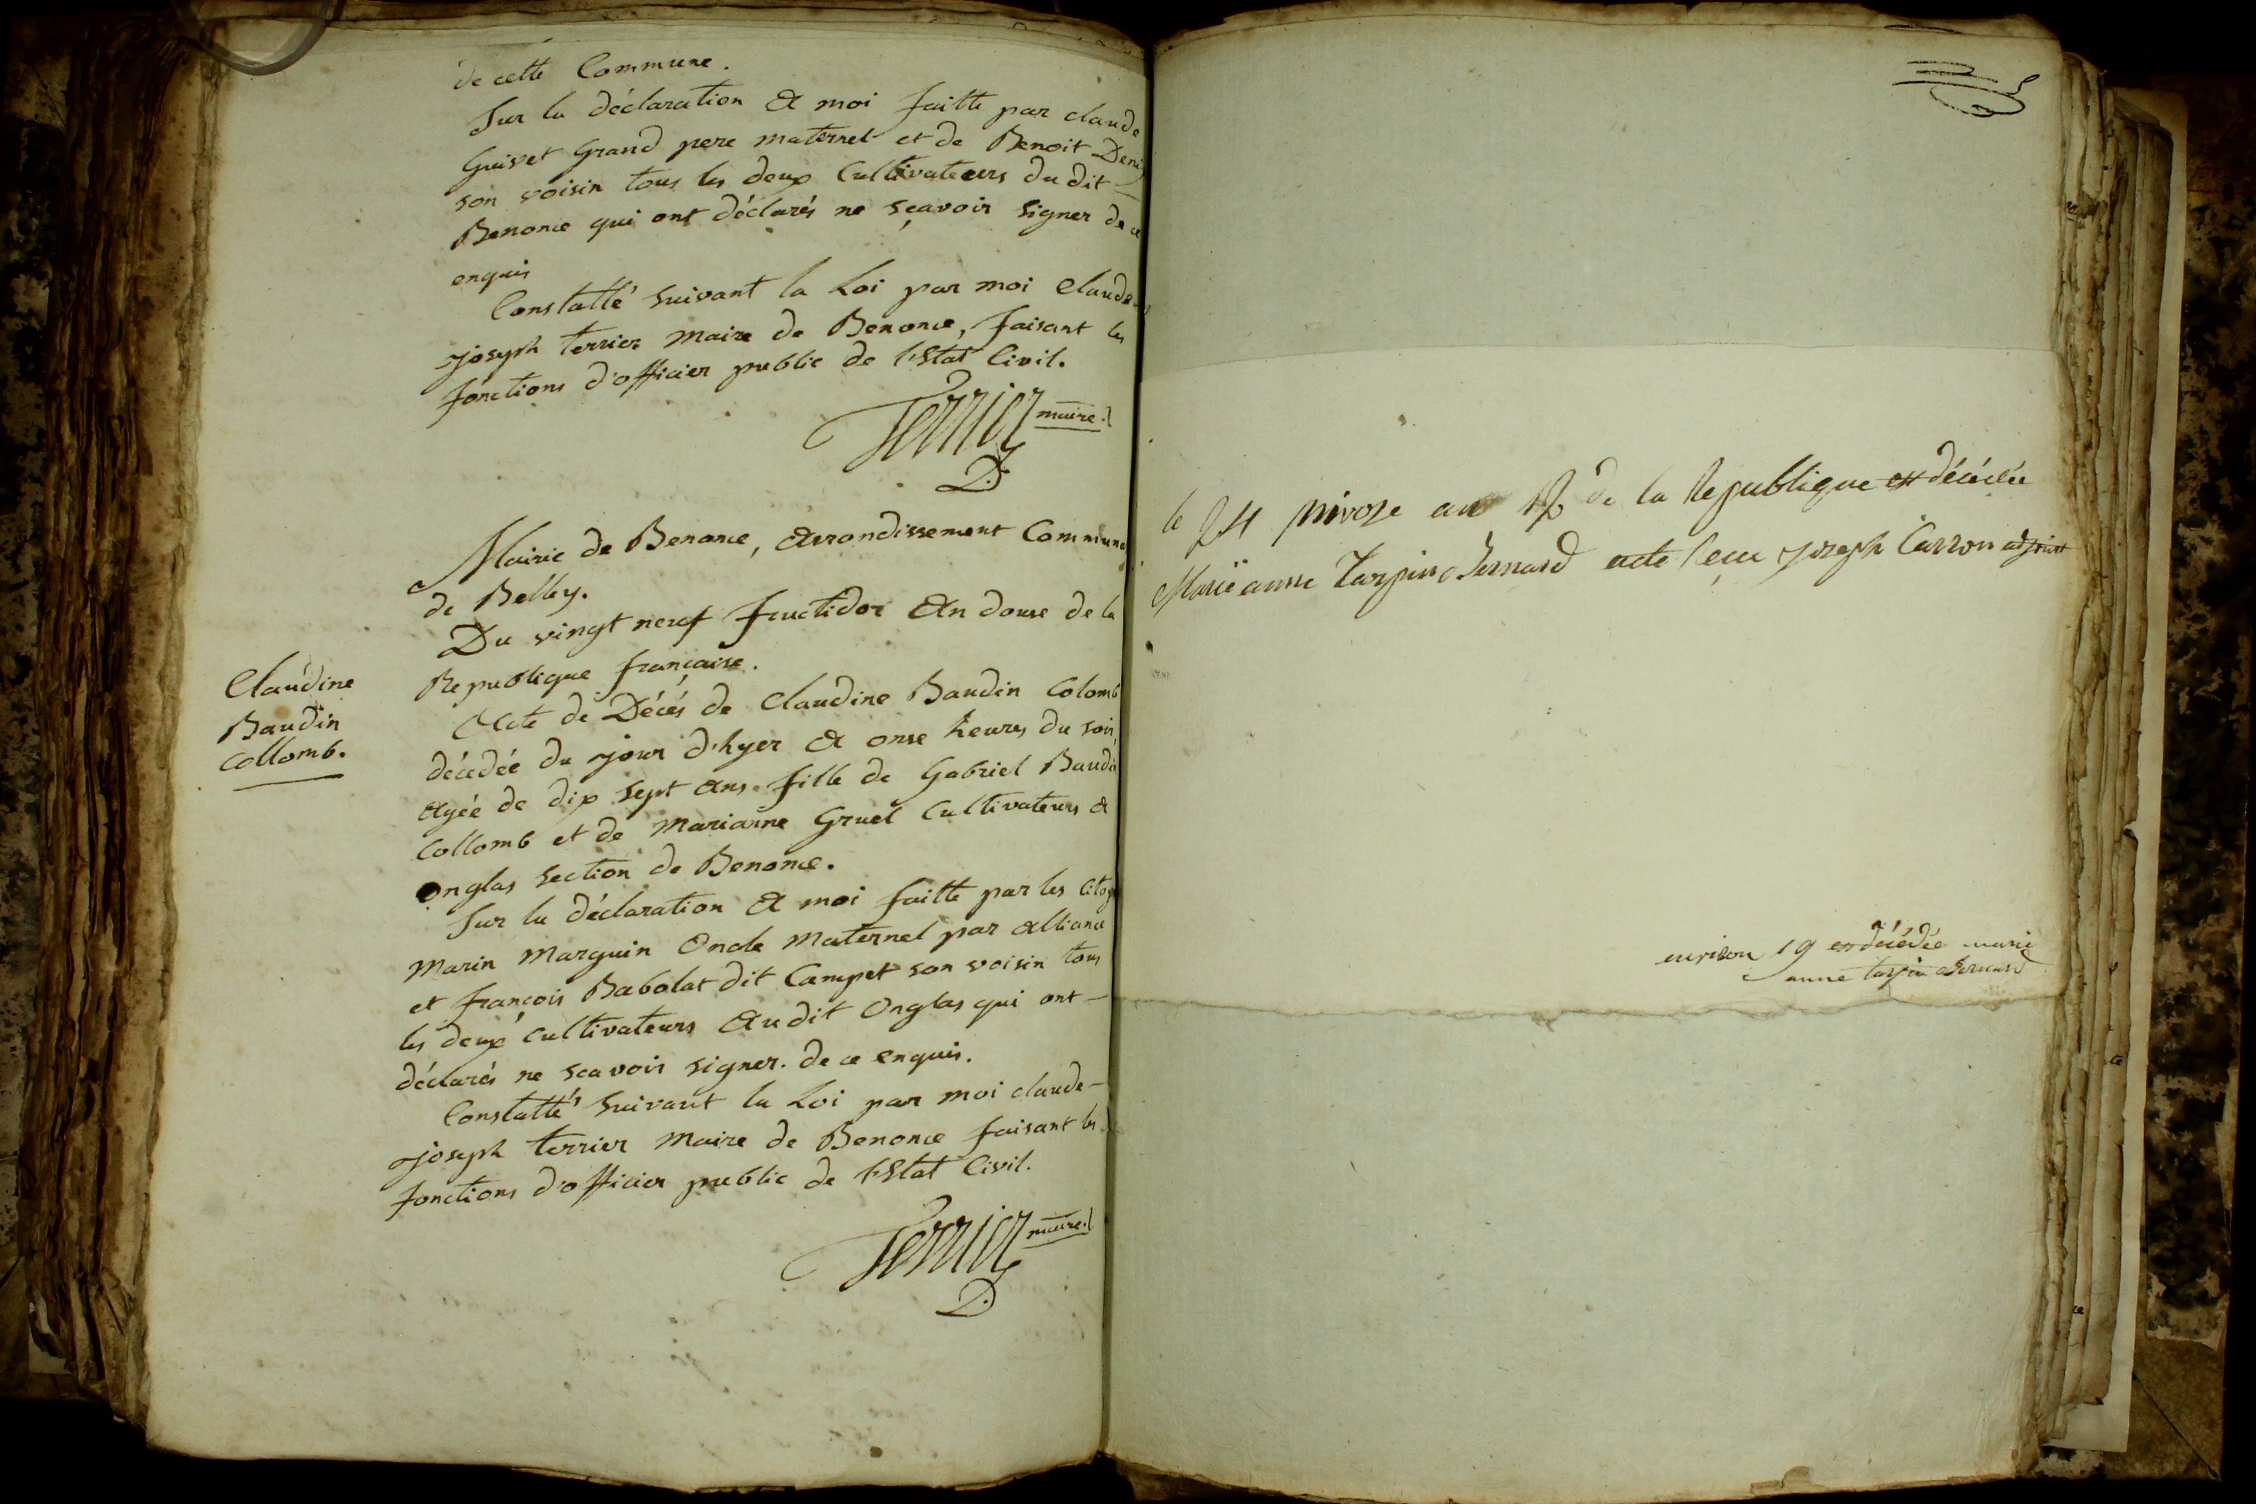 de cette Commune.
Sur la déclaration A moi faitte par claude
Guivet Grand pere maternel et de Benoit Deni
son voisin tous les deux Cultivateurs du dit
Benonce qui ont déclarés ne sçavoir signer de ce
enquis
Constatté suivant la Loi par moi Claude
joseph terrier Maire de Benonce, faisant les
fonctions d'officier public de l'Etat Civil.
Terrier maire.
D.
Mairie de Benonce, Arrondissement Commun
de Belley.
Du vingt neuf fructidor An douse de la
Republique française.
Claudine
Baudin
Collomb.
Acte de Décés de Claudine Baudin Colomb
décedée du jour d'hyer A onse heures du soir,
Agée de dix sept ans. fille de Gabriel Baudi
Collomb et de Marianne Gruel Cultivateurs A
Onglas section de Benonce.
Sur la déclaration A moi faitte par les Citoy
Marin Marguin Oncle Maternel par alliance
et françois Babolat dit Campet son voisin tous
les deux cultivateurs Audit Onglas qui ont
déclarés ne scavoir signer. de ce enquis.
Constatté suivant la Loi par moi claude
joseph terrier Maire de Benonce faisant les
fonctions d'officier public de l'Etat Civil.
Terrier maire.
D.
le nivose an de la Republique est décédée
Marië anne Tarpin Bernard acte joseph Carron adjoint
environ 19 est décédée marie
anne tarpin Bernard